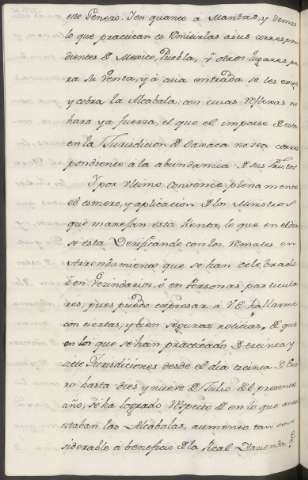 este Genero. Y en quanto a Mantas, y demas
lo que practican es enviarlas a sus correspon
dientes de Mexico, Puebla, y otros lugares pa
ra su Venta, y a cuia entrada se les exige,
y cobra la Alcabala, con cuias
hara ya fuerza, el que el importe de esta
en la Jurisdiccion de Oaxaca no sea corres
pondiente a la abundancia de sus frutos.
Y por ultimo convence plenamente
el esmero, y aplicacion de los Ministros
que manejan esta Renta, lo que en el dia
se está Verificando con los Ramales en
Arrendamiento que se han celebrado
en Vecindarios, ó en personas particula
res, pues puedo expresar á V.E. hallarme
con ciertas, y bien seguras noticias, de que
en los que se han practicado de treinta y
siete Jurisdicciones desde el dia treinta de
ro hasta diez y nueve de Julio del presente
año, se ha logrado respecto de en lo que
estaban las Alcabalas, aumento tan con
siderable a beneficio de la Real Hacienda